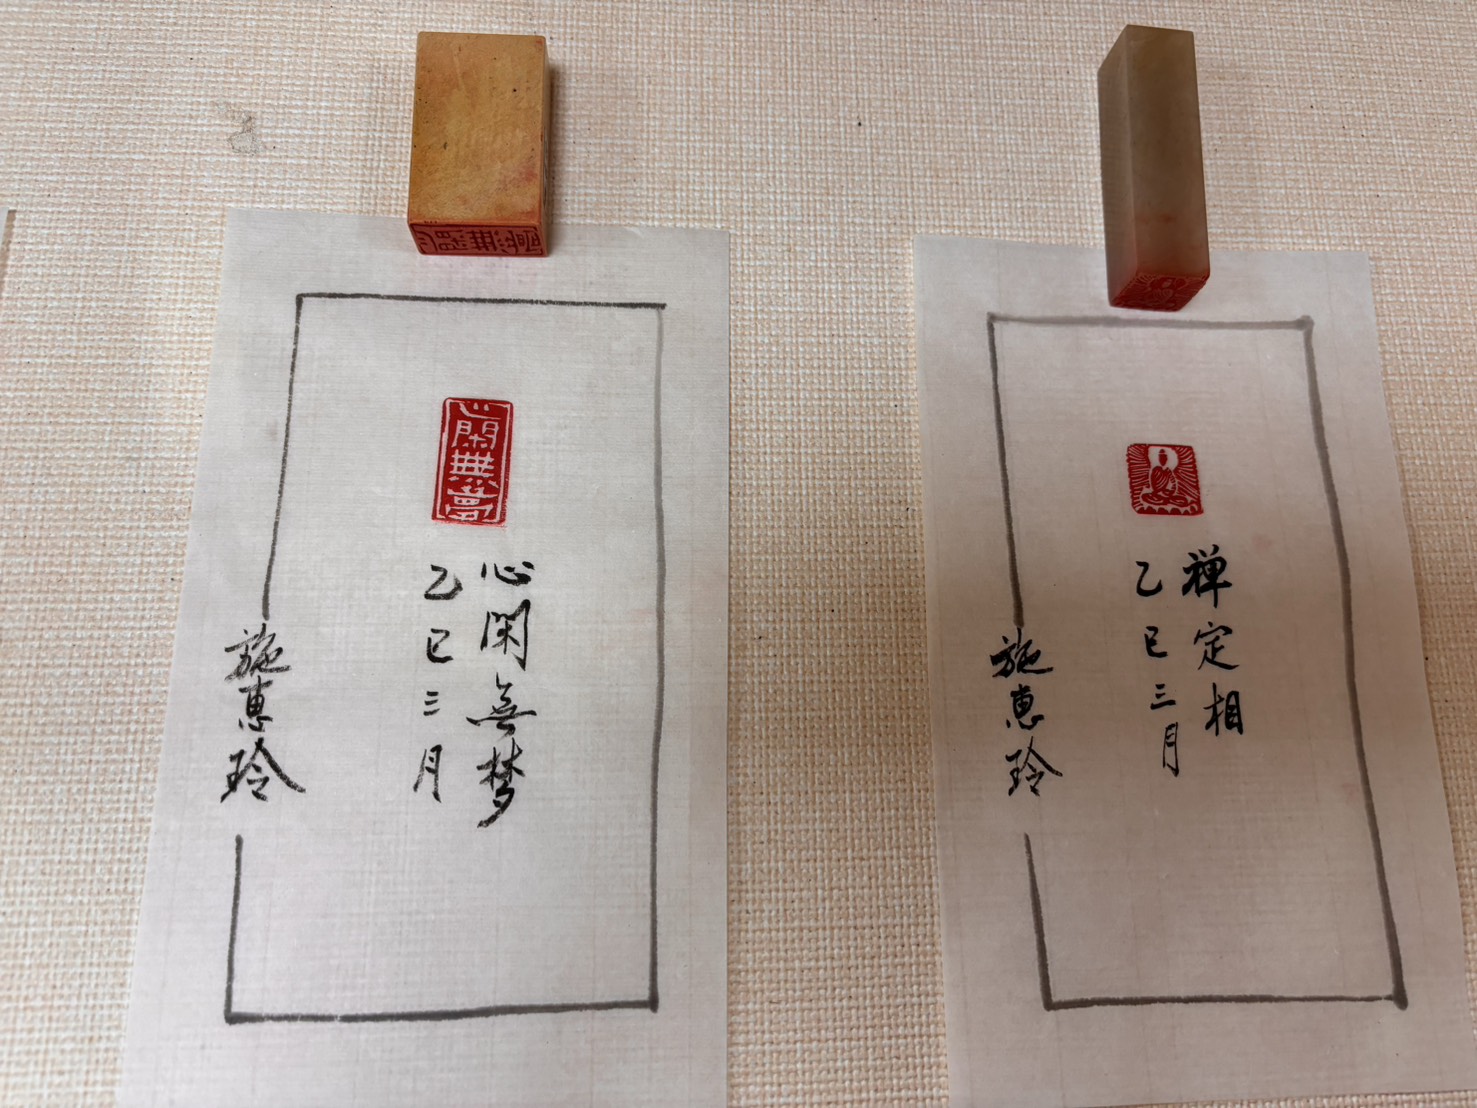 心閑無夢
心閑無梦
乙巳三月
施惠玲
禅定相
乙巳三月
施惠玲